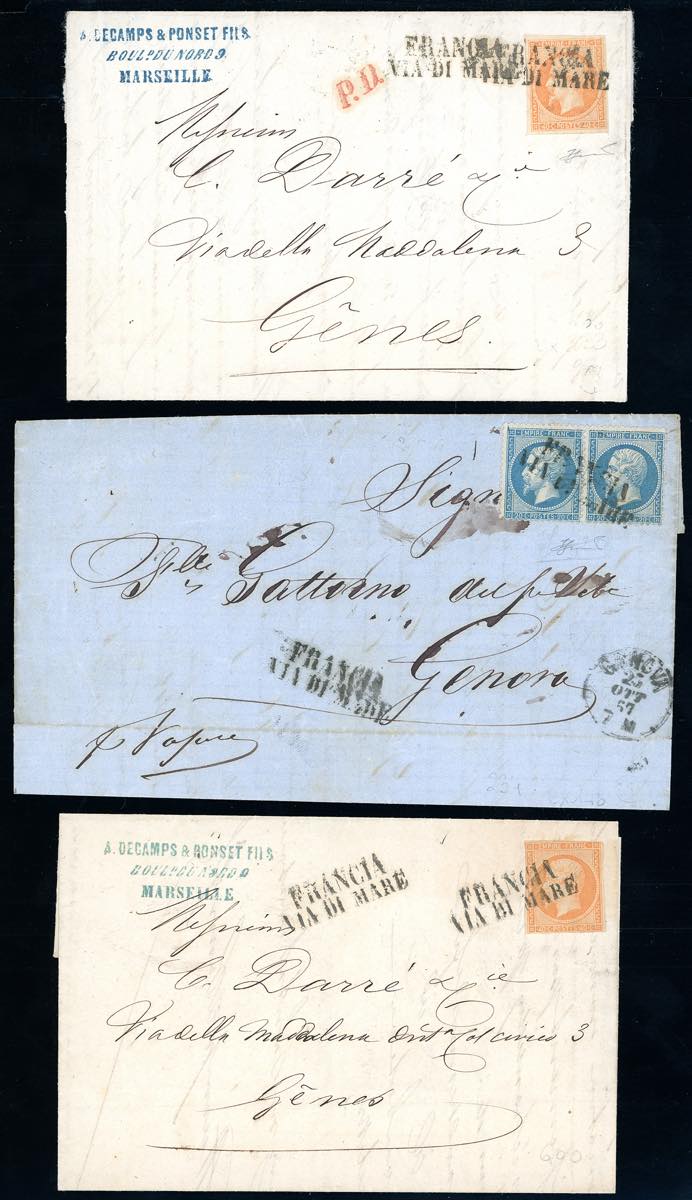 A. DECAMPS & PONSET FILS
BOULD DU NORD 9.
MARSEILLE
P.D.
FRANCIA
VIA DI MARE
FRANCIA
VIA DI MARE
40 C POSTES 40 C
Messieurs
C. Darré & Cie
Via della Maddalena 3
Gênes.
EMPIRE FRANC
20 C POSTES 20 C
EMPIRE FRANC
FRANCIA
VIA DI MARE
Sign
Flli Gattorno del fu
Genova
FRANCIA
VIA DI MARE
GENOVA
OTT
67
7 M
p Vapore
A. DECAMPS & PONSET FILS
BOULD DU NORD 9
MARSEILLE
FRANCIA
VIA DI MARE
FRANCIA
VIA DI MARE
EMPIRE FRANC
40 C POSTES 40 C
Messieurs
C. Darré & Cie
Via della Maddalena 3
Gênes
600